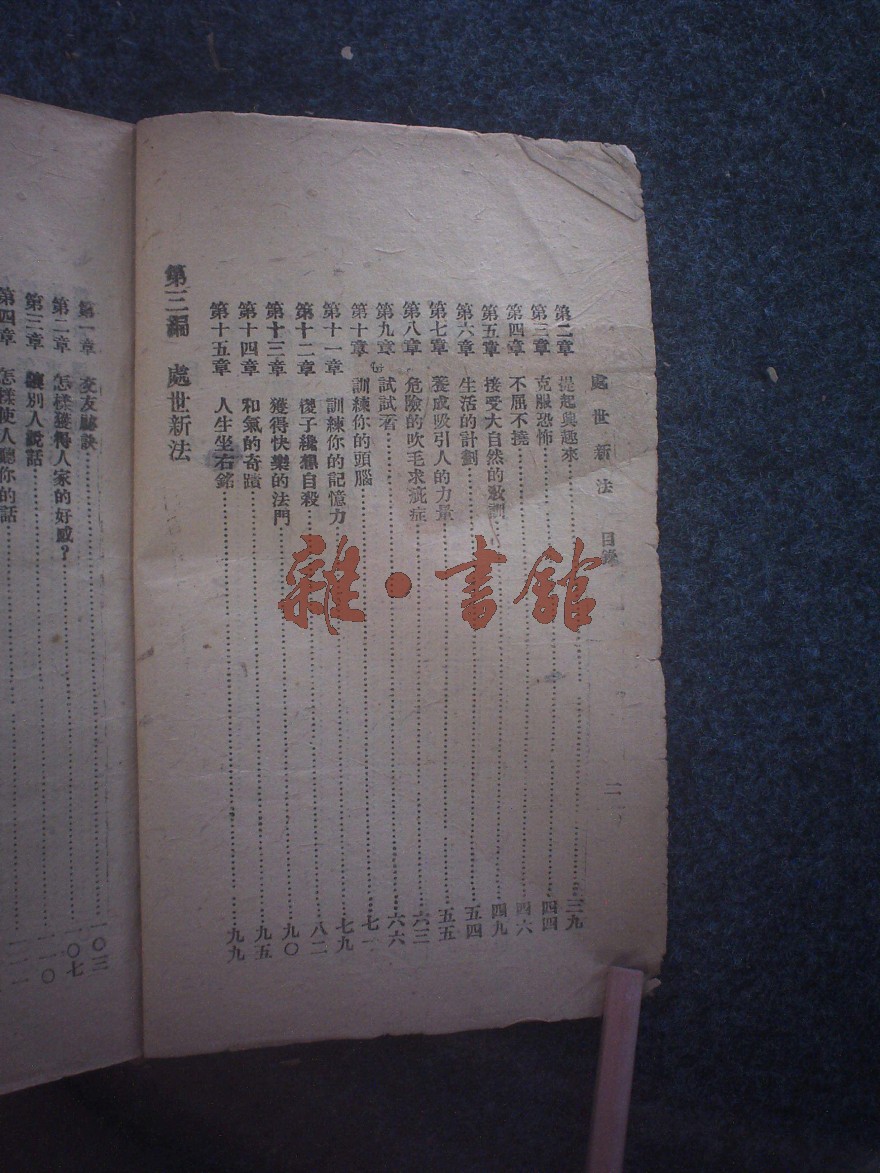 處世新法 目錄 二
第二章 提起興趣來 三九
第三章 克服恐怖 四四
第四章 不屈不撓 四六
第五章 接受大自然的教訓 四九
第六章 生活的計劃 五四
第七章 養成吸引人的力量 五五
第八章 危險的吹毛求疵症 六三
第九章 試試看 六六
第十章 訓練你的頭腦 七一
第十一章 訓練你的記憶力 七九
第十二章 傻子纔想自殺 八二
第十三章 獲得快樂的法門 九〇
第十四章 和氣的奇蹟 九五
第十五章 人生坐右銘 九九
第三編 處世新法
第一章 交友祕訣 一〇三
第二章 怎樣獲得人家的好感？ 一〇七
第三章 讓別人說話 一一〇
第四章 怎樣使人聽你的話
雜·書館